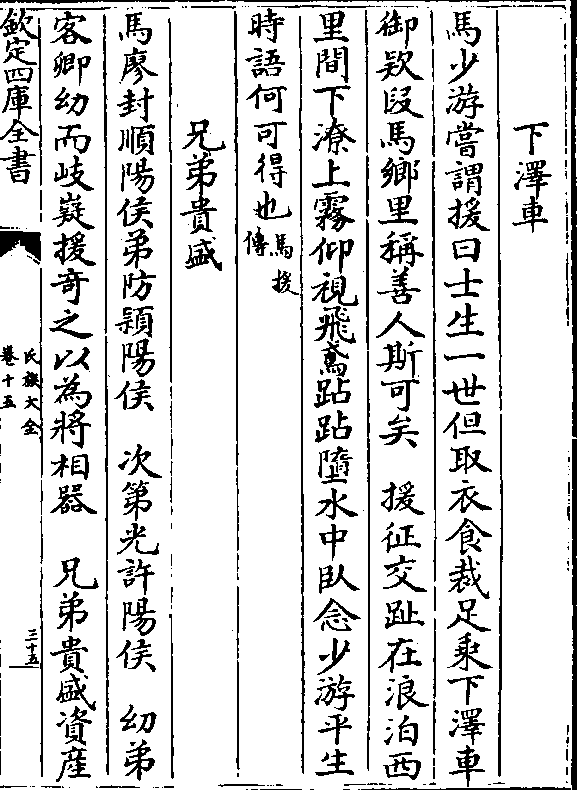 下澤車
馬少游嘗謂援曰士生一世但取衣食裁足乘下澤車
御欵段馬鄉里稱善人斯可矣　援征交趾在浪泊西
里間下潦上霧仰視飛鳶跕跕墮水中臥念少游平生
時語何可得也馬援傳
兄弟貴盛
馬廖封順陽侯弟防頴陽侯　次第光許陽侯　幼弟
客卿幼而岐嶷援奇之以為將相器　兄弟貴盛資産
欽定四庫全書
氏族大全
卷十五
三十五